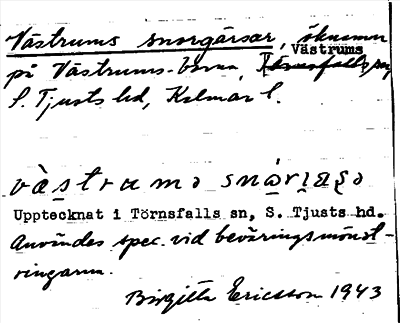 Västrums snorgärsar, öknamn
Västrums
på Västrums-borna, Törnsfalls sn,
S. Tjusts hd, Kalmar l.
Upptecknat i Törnsfalls sn, S. Tjusts hd.
Användes spec. vid beväringsmönst-
ringarna.
Birgitta Ericsson 1943